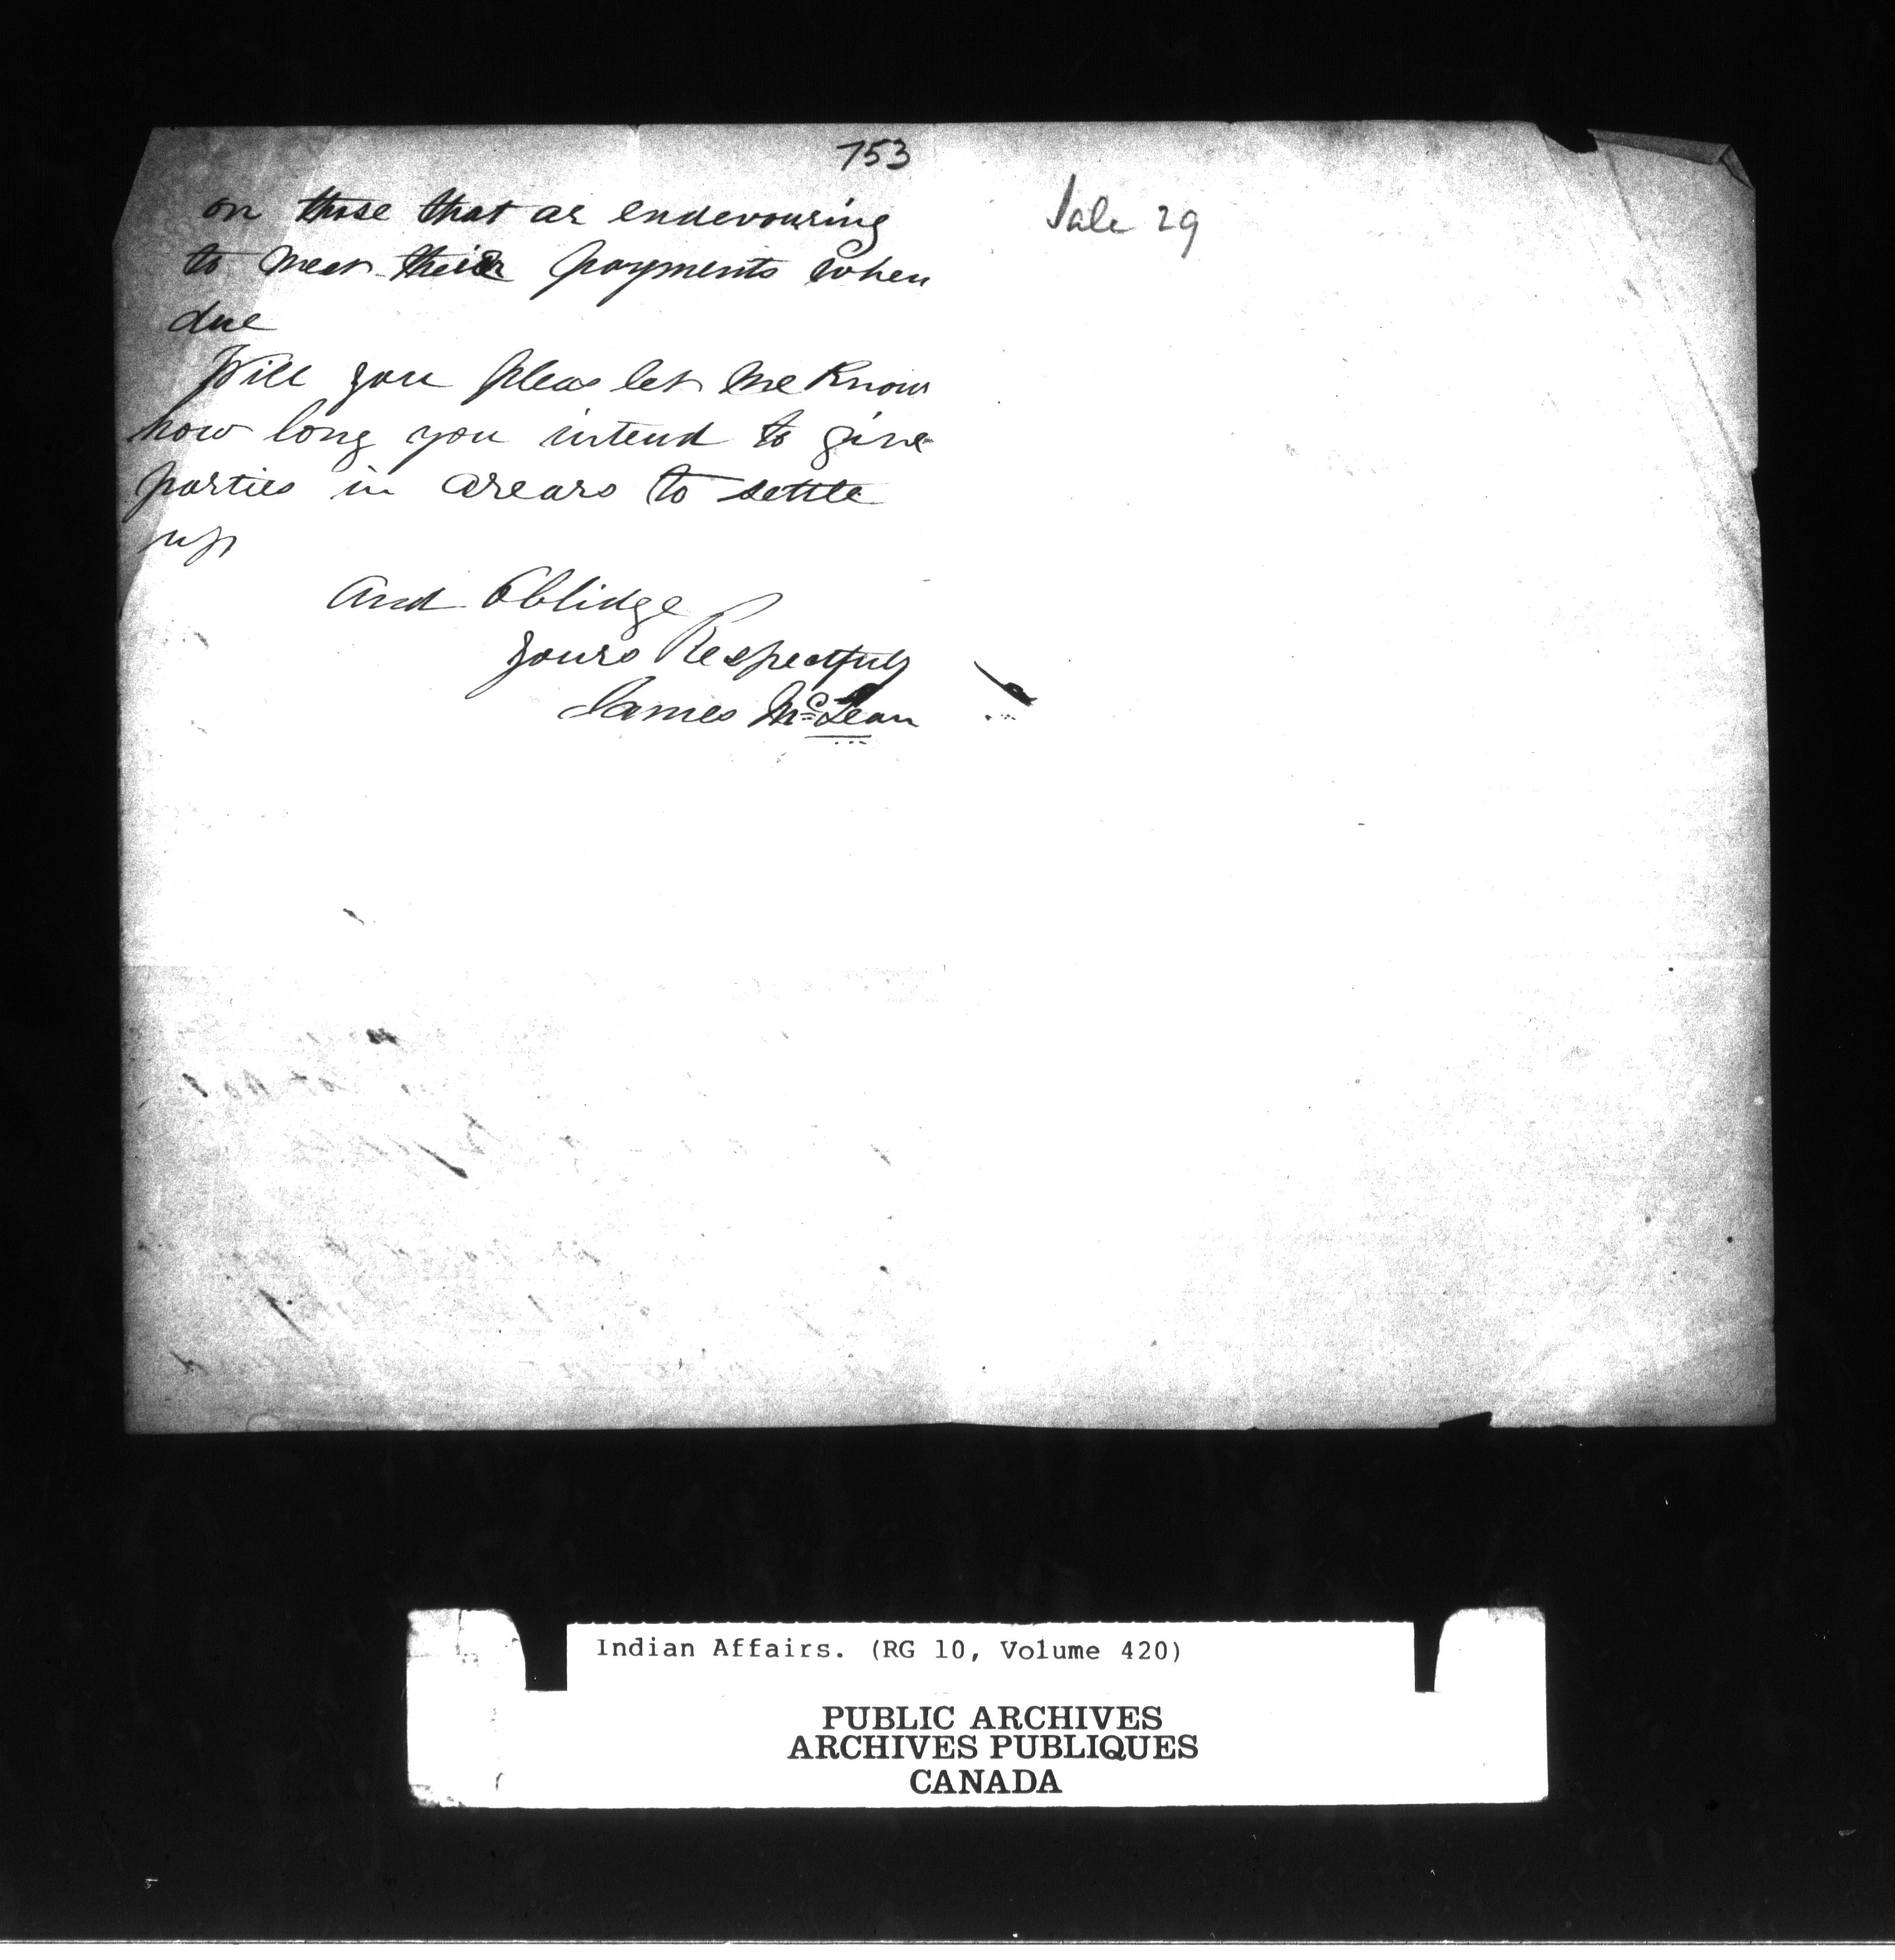 753
on those that ar endevouring
to meet their payments when
due
Will you pleas let me Know
how long you intend to give
parties in arears to settle
up
and Oblidge
yours Respectfuly
James McLean
Sale 29
Indian Affairs. (RG 10, Volume 420)
PUBLIC ARCHIVES
ARCHIVES PUBLIQUES
CANADA